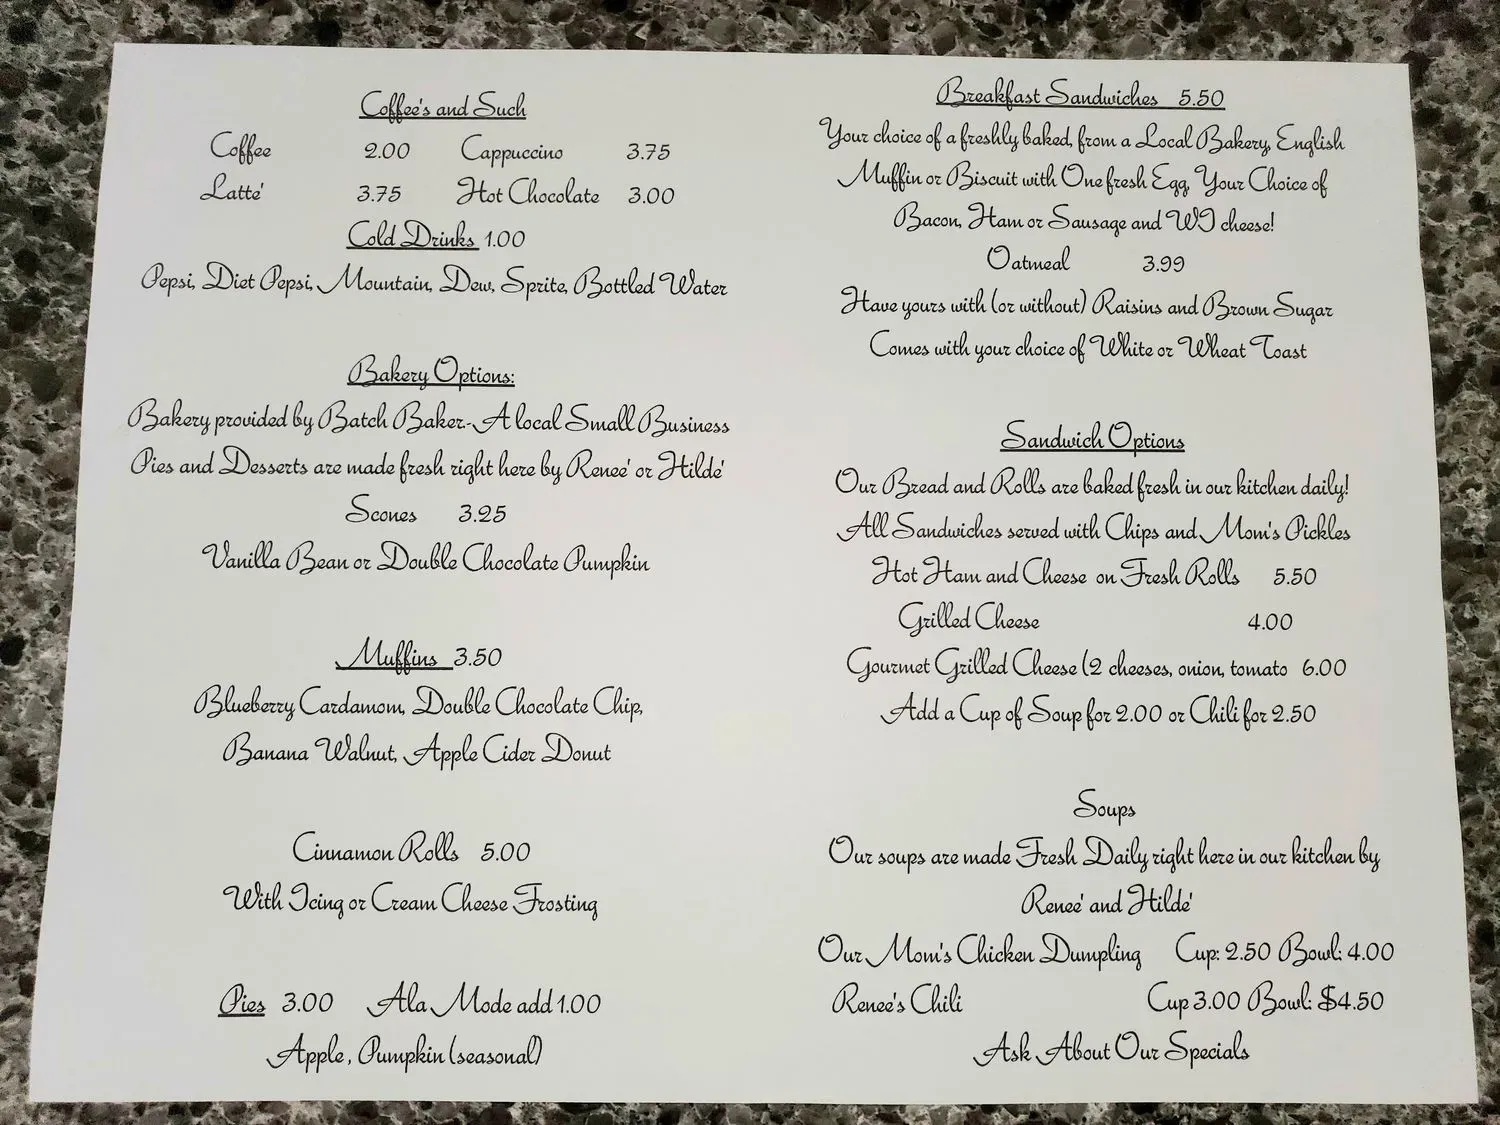 Coffee's and Such
Coffee 2.00 Cappuccino 3.75
Latte' 3.75 Hot Chocolate 3.00
Cold Drinks 1.00
Pepsi, Diet Pepsi, Mountain, Dew, Sprite, Bottled Water
Bakery Options:
Bakery provided by Batch Baker.-A local Small Business
Pies and Desserts are made fresh right here by Renee' or Hilde'
Scones 3.25
Vanilla Bean or Double Chocolate Pumpkin
Muffins 3.50
Blueberry Cardamom, Double Chocolate Chip,
Banana Walnut, Apple Cider Donut
Cinnamon Rolls 5.00
With Icing or Cream Cheese Frosting
Pies 3.00 Ala Mode add 1.00
Apple, Pumpkin (seasonal)
Breakfast Sandwiches 5.50
Your choice of a freshly baked, from a Local Bakery, English
Muffin or Biscuit with One fresh Egg, Your Choice of
Bacon, Ham or Sausage and WI cheese!
Oatmeal 3.99
Have yours with (or without) Raisins and Brown Sugar
Comes with your choice of White or Wheat Toast
Sandwich Options
Our Bread and Rolls are baked fresh in our kitchen daily!
All Sandwiches served with Chips and Mom's Pickles
Hot Ham and Cheese on Fresh Rolls 5.50
Grilled Cheese 4.00
Gourmet Grilled Cheese (2 cheeses, onion, tomato 6.00
Add a Cup of Soup for 2.00 or Chili for 2.50
Soups
Our soups are made Fresh Daily right here in our kitchen by
Renee' and Hilde'
Our Mom's Chicken Dumpling Cup: 2.50 Bowl: 4.00
Renee's Chili Cup 3.00 Bowl: $4.50
Ask About Our Specials